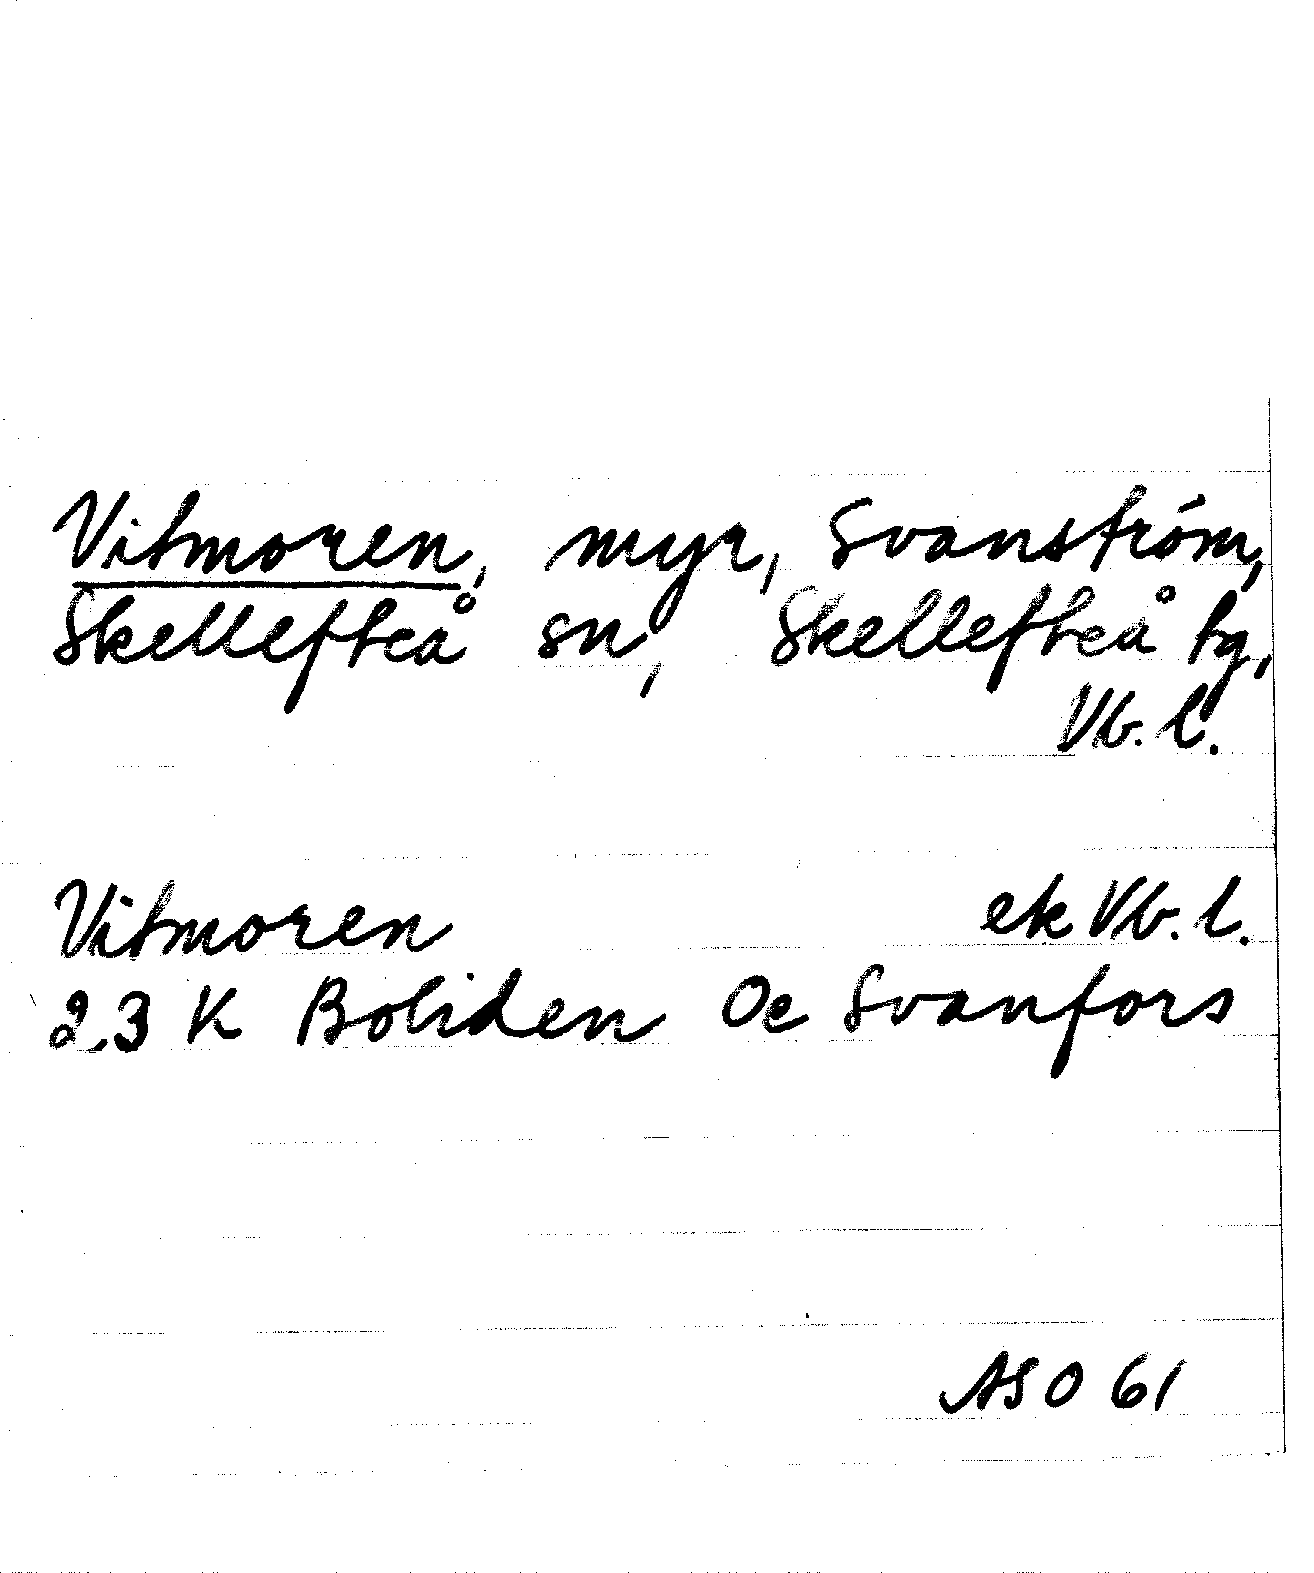 Vitmoren, myr, Svanström,
Skellefteå sn, Skellefteå tg,
Vb. l.
Vitmoren ek Vb. l.
23 K Boliden Oe Svanfors
ASO 61